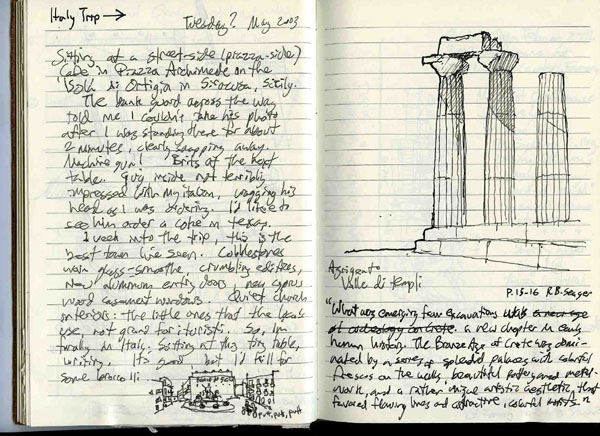 Italy Trip →
Tuesday? May 2003
Sitting at a street-side (piazza-side)
Cafe in Piazza Archimede on the
Isola di Ortigia in Siracusa, Sicily.
The bank guard across the way
told me I couldn't take his photo
after I was standing there for about
2 minutes, clearly snapping away.
Machine gun! Brits at the next
table. Guy inside not terribly
impressed with my italian, wagging his
head as I was ordering. I'd like to
see him order a coke in Texas.
1 week into the trip, this is the
best town I've seen. Cobblestones
worn glass-smooth, crumbling edifices,
new aluminum entry doors, new cyprus
wood casement windows. Quiet church
interiors: the little ones that the locals
use, not grand for i turisti. So, I'm
finally in Italy. Sitting at this tiny table,
writing. It's good but I'd kill for
some
putt, putt, putt
Agrigento
Valle di Templi
P. 15-16 R.B. Seager
"What was emerging few excavations was a new age
of archaeology on Crete. a new chapter in early
human history. The Bronze Age of Crete was domi-
nated by a series of splendid palaces with colorful
frescos on the walls, beautiful pottery and metal-
work, and a rather unique artistic aesthetic, that
favored flowing lines and attractive, colorful motifs."